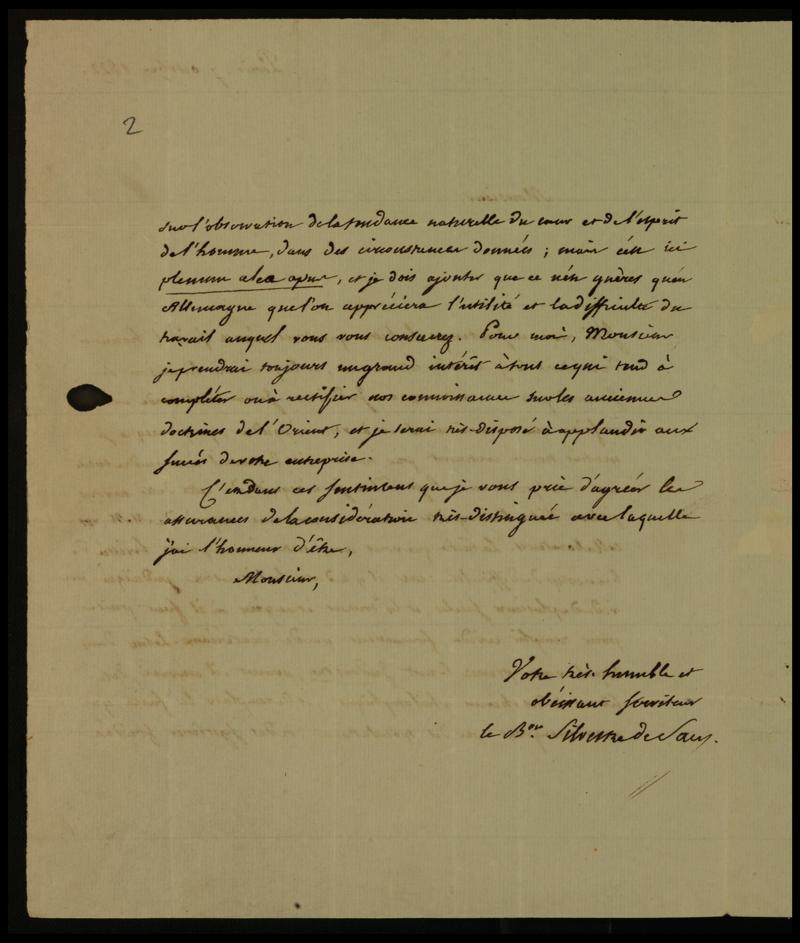 2
sur l'observation de la tendance naturelle du cœur et de l'esprit
de l'homme, dans des circonstances données ; mais c'est ici
plenum aleæ opus, et je dois ajouter que ce n'est guères qu'en
Allemagne que l'on appréciera l'utilité et la difficulté du
travail auquel vous vous consacrez. Pour moi, Monsieur
je prendrai toujours un grand intérêt à tout ce qui tend à
compléter ou à rectifier nos connoissances sur les anciennes
doctrines de l'Orient, et je serai très-disposé à applaudir aux
succès de votre entreprise.
C'est dans ces sentimens que je vous prie d'agréer les
assurances de la considération très-distinguée avec laquelle
j'ai l'honneur d'être,
Monsieur,
Votre très-humble et
obéissant serviteur
le Bon. Silvestre de Sacy.